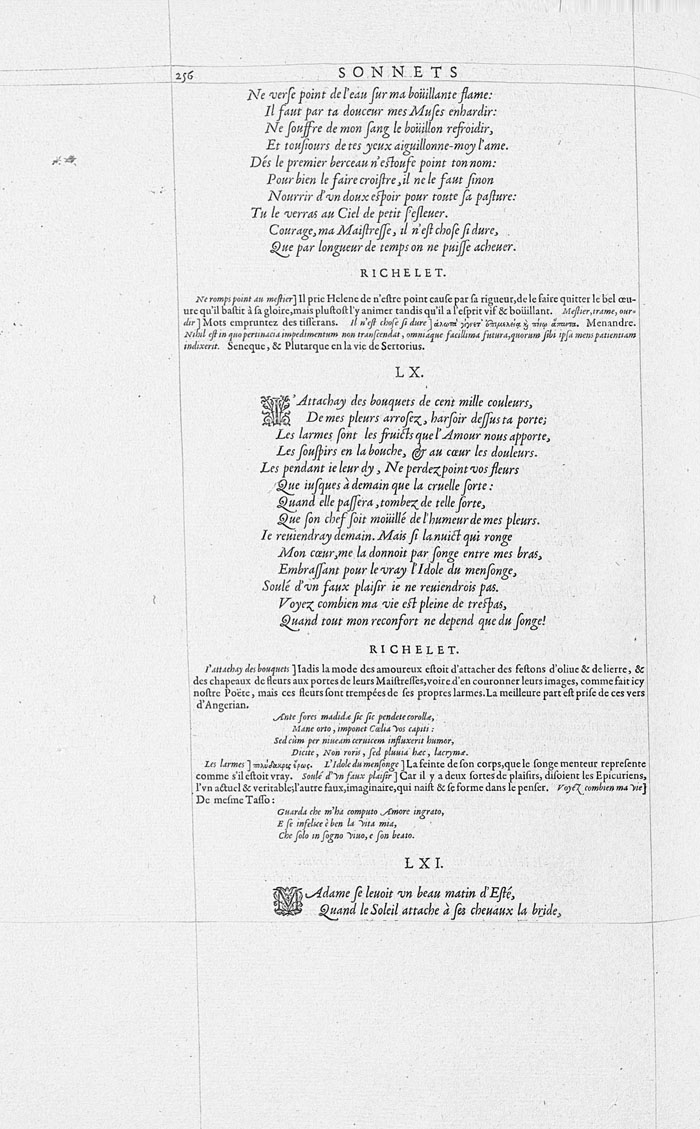 256 SONNETS
Ne verſe point de l'eau ſur ma boüillante flame:
Il faut par ta douceur mes Muſes enhardir:
Ne ſouffre de mon ſang le boüillon refroidir,
Et touſiours de tes yeux aiguillonne-moy l'ame.
Dés le premier berceau n'eſtoufe point ton nom:
Pour bien le faire croiſtre, il ne le faut ſinon
Nourrir d'vn doux eſpoir pour toute ſa paſture:
Tu le verras au Ciel de petit ſ'eſleuer.
Courage, ma Maiſtreſſe, il n'eſt choſe ſi dure,
Que par longueur de temps on ne puiſſe acheuer.
RICHELET.
Ne romps point au meſtier] Il prie Helene de n'eſtre point cauſe par ſa rigueur, de le faire quitter le bel œu-
ure qu'il baſtit à ſa gloire, mais pluſtoſt l'y animer tandis qu'il a l'eſprit vif & boüillant. Meſtier, trame, our-
dir] Mots empruntez des tiſſerans. Il n'eſt choſe ſi dure] Menandre.
Nihil eſt in quo pertinacia impedimentum non tranſcendat, omniaque facillima futura, quorum ſibi ipſa mens patientiam
indixerit. Seneque, & Plutarque en la vie de Sertorius.
LX.
I'Attachay des bouquets de cent mille couleurs,
De mes pleurs arroſez, harſoir deſſus ta porte;
Les larmes ſont les fruicts que l'Amour nous apporte,
Les ſouſpirs en la bouche, & au cœur les douleurs.
Les pendant ie leur dy, Ne perdez point vos fleurs
Que iuſques à demain que la cruelle ſorte:
Quand elle paſſera, tombez de telle ſorte,
Que ſon chef ſoit moüillé de l'humeur de mes pleurs.
Ie reuiendray demain. Mais ſi la nuict qui ronge
Mon cœur, me la donnoit par ſonge entre mes bras,
Embraſſant pour le vray l'Idole du menſonge,
Soulé d'vn faux plaiſir ie ne reuiendrois pas.
Voyez combien ma vie eſt pleine de treſpas,
Quand tout mon reconfort ne depend que du ſonge!
RICHELET.
I'attachay des bouquets] Iadis la mode des amoureux eſtoit d'attacher des feſtons d'oliue & de lierre, &
des chapeaux de fleurs aux portes de leurs Maiſtreſſes, voire d'en couronner leurs images, comme fait icy
noſtre Poëte, mais ces fleurs ſont trempées de ſes propres larmes. La meilleure part eſt priſe de ces vers
d'Angerian.
Ante fores madidæ ſic ſic pendete corollæ,
Mane orto, imponet Cœlia vos capiti:
Sed cùm per niueam ceruicem influxerit humor,
Dicite, Non roris, ſed pluuia hæc, lacrymæ.
Les larmes] πολύδακρις ἔρως. L'Idole du menſonge] La feinte de ſon corps, que le ſonge menteur repreſente
comme s'il eſtoit vray. Soulé d'vn faux plaiſir] Car il y a deux ſortes de plaiſirs, diſoient les Epicuriens,
l'vn actuel & veritable; l'autre faux, imaginaire, qui naiſt & ſe forme dans le penſer. Voyez combien ma vie]
De meſme Taſſo:
Guarda che m'ha computo Amore ingrato,
E ſe infelice è ben la vita mia,
Che ſolo in ſogno viuo, e ſon beato.
LXI.
MAdame ſe leuoit vn beau matin d'Eſté,
Quand le Soleil attache à ſes cheuaux la bride,